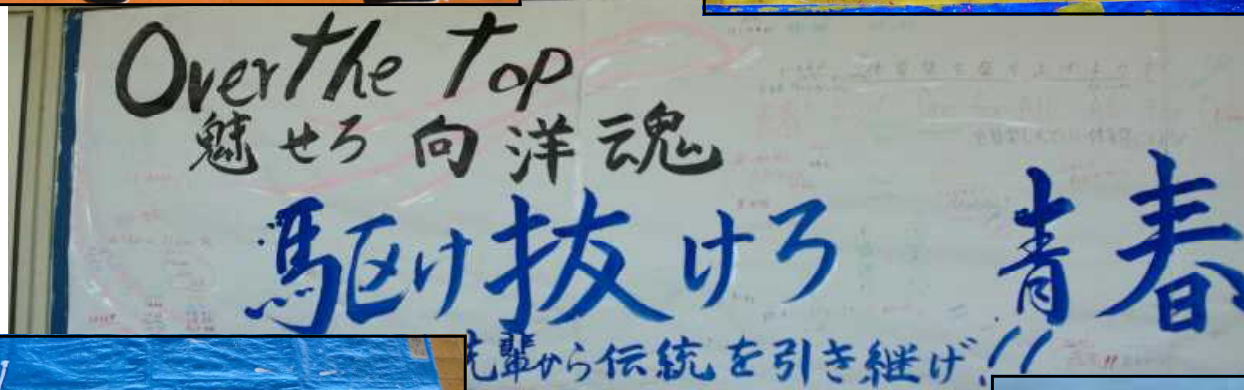 Over the Top
魅せろ 向洋魂
駆け抜けろ 青春
先輩から伝統を引き継げ!!